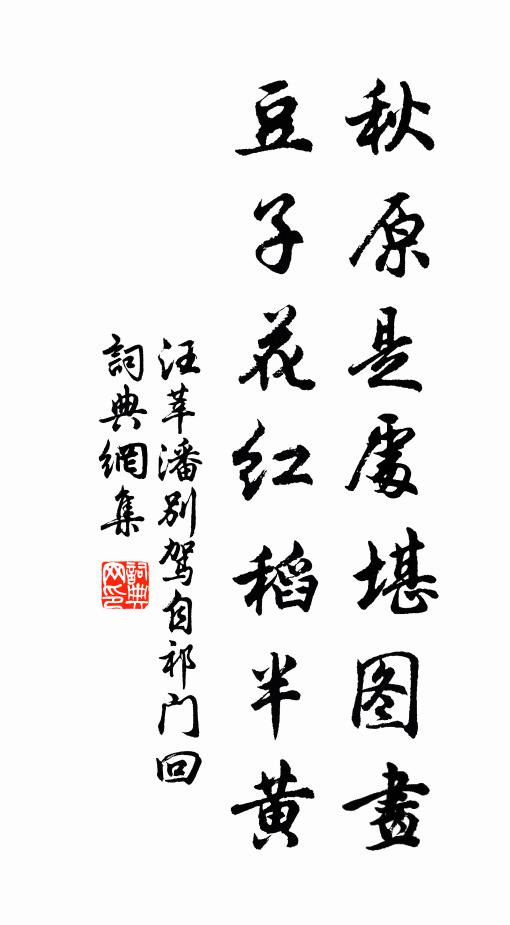 秋原是處堪图畫
豆子花红稻半黄
汪莘潘别駕自祁门回
詞典網集
詞典网印